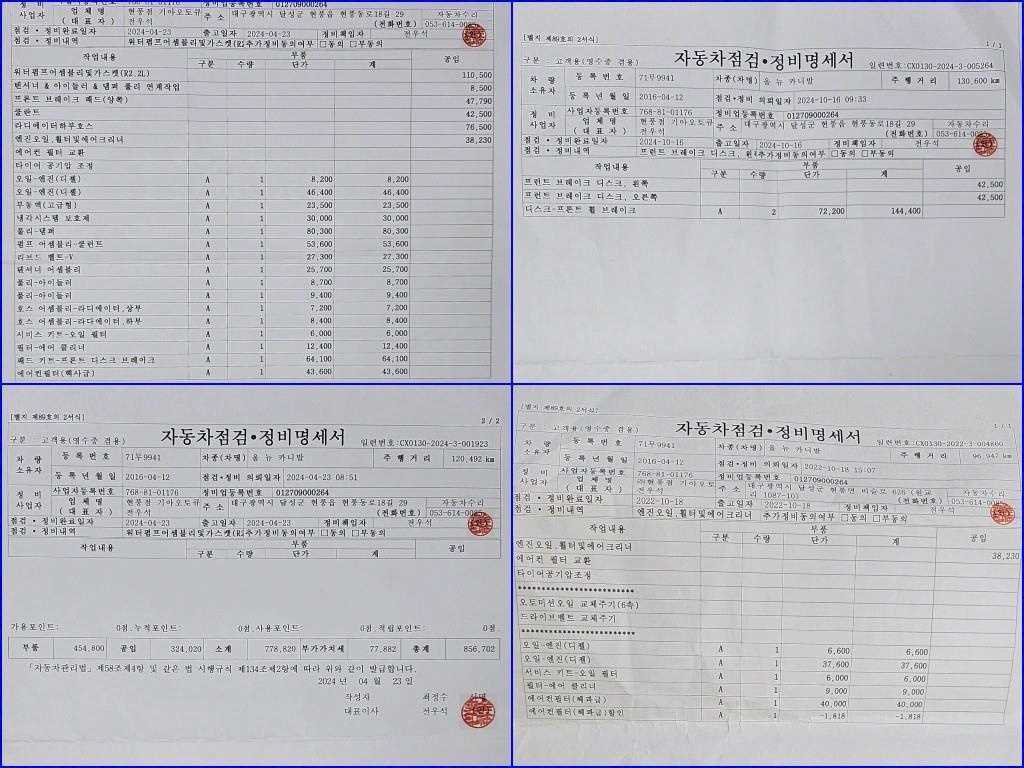 사업자 업 체 명 현풍점 기아오토큐 주 소 대구광역시 달성군 현풍읍 현풍동로18길 29 자동차수리
( 대 표 자 ) 전우석 (전화번호) 053-614-00
점검・정비완료일자 2024-04-23 출고일자 2024-04-23 정비책임자 전우석
점검・정비내역 워터펌프어셈블리및가스켓(R 추가정비동의여부 □동의 □부동의
작업내용 부품 공임
구분 수량 단가 계
워터펌프어셈블리및가스켓(R2.2L) 110,500
텐셔너 & 아이들러 & 댐퍼 풀리 연계작업 8,500
프론트 브레이크 패드(양쪽) 47,790
쿨런트 42,500
라디에이터하부호스 76,500
엔진오일,휠터및에어크리너 38,230
에어컨 필터 교환
타이어 공기압 조정
오일-엔진(디젤) A 1 8,200 8,200
오일-엔진(디젤) A 1 46,400 46,400
부동액(고급형) A 1 23,500 23,500
냉각시스템 보호제 A 1 30,000 30,000
풀리-댐퍼 A 1 80,300 80,300
펌프 어셈블리-쿨런트 A 1 53,600 53,600
리브드 벨트-V A 1 27,300 27,300
텐셔너 어셈블리 A 1 25,700 25,700
풀리-아이들러 A 1 8,700 8,700
풀리-아이들러 A 1 9,400 9,400
호스 어셈블리-라디에이터,상부 A 1 7,200 7,200
호스 어셈블리-라디에이터,하부 A 1 8,400 8,400
서비스 키트-오일 필터 A 1 6,000 6,000
필터-에어 클리너 A 1 12,400 12,400
패드 키트-프론트 디스크 브레이크 A 1 64,100 64,100
에어컨필터(헤파급) A 1 43,600 43,600
[별지 제89호의 2서식]
1 / 1
구분 고객용(영수증 겸용) 자동차점검・정비명세서 일련번호:CX0130-2024-3-005264
차 량 소유자 등 록 번 호 71무9941 차종(차명) 올 뉴 카니발 주 행 거 리 130,600 km
등 록 년 월 일 2016-04-12 점검・정비 의뢰일자 2024-10-16 09:33
정 비 사업자등록번호 768-81-01176 정비업등록번호 012709000264
사업자 업 체 명 현풍점 기아오토큐 주 소 대구광역시 달성군 현풍읍 현풍동로18길 29 자동차수리
( 대 표 자 ) 전우석 (전화번호) 053-614-00
점검・정비완료일자 2024-10-16 출고일자 2024-10-16 정비책임자 전우석
점검・정비내역 프런트 브레이크 디스크, 왼 추가정비동의여부 □동의 □부동의
작업내용 부품 공임
구분 수량 단가 계
프런트 브레이크 디스크, 왼쪽 42,500
프런트 브레이크 디스크, 오른쪽 42,500
디스크-프론트 휠 브레이크 A 2 72,200 144,400
[별지 제89호의 2서식]
2 / 2
구분 고객용(영수증 겸용) 자동차점검・정비명세서 일련번호:CX0130-2024-3-001923
차 량 소유자 등 록 번 호 71무9941 차종(차명) 올 뉴 카니발 주 행 거 리 120,492 km
등 록 년 월 일 2016-04-12 점검・정비 의뢰일자 2024-04-23 08:51
정 비 사업자등록번호 768-81-01176 정비업등록번호 012709000264
사업자 업 체 명 현풍점 기아오토큐 주 소 대구광역시 달성군 현풍읍 현풍동로18길 29 자동차수리
( 대 표 자 ) 전우석 (전화번호) 053-614-00
점검・정비완료일자 2024-04-23 출고일자 2024-04-23 정비책임자 전우석
점검・정비내역 워터펌프어셈블리및가스켓(R 추가정비동의여부 □동의 □부동의
작업내용 부품 공임
구분 수량 단가 계
가용포인트: 0점,누적포인트: 0점,사용포인트: 0점,적립포인트: 0점.
부품 454,800 공임 324,020 소계 778,820 부가가치세 77,882 총계 856,702
「자동차관리법」 제58조제4항 및 같은 법 시행규칙 제134조제2항에 따라 위와 같이 발급합니다.
2024 년 04 월 23 일
작성자 최경수 서명
대표이사 전우석
[별지 제89호의 2서식]
1 / 1
구분 고객용(영수증 겸용) 자동차점검・정비명세서 일련번호:CX0130-2022-3-004860
차 량 소유자 등 록 번 호 71무9941 차종(차명) 올 뉴 카니발 주 행 거 리 96,947 km
등 록 년 월 일 2016-04-12 점검・정비 의뢰일자 2022-10-18 15:07
정 비 사업자등록번호 768-81-01176 정비업등록번호 012709000264
사업자 업 체 명 ㈜현풍점 기아오 주 소 대구광역시 달성군 현풍면 비슬로 626 (원교리 1087-10) 자동차수리
( 대 표 자 ) 전우석 (전화번호) 053-614-00
점검・정비완료일자 2022-10-18 출고일자 2022-10-18 정비책임자 전우석
점검・정비내역 엔진오일,휠터및에어크리너 추가정비동의여부 □동의 □부동의
작업내용 부품 공임
구분 수량 단가 계
엔진오일,휠터및에어크리너 38,230
에어컨 필터 교환
타이어공기압조정
************************
오토미션오일 교체주기(6축)
드라이브벨트 교체주기
************************
오일-엔진(디젤) A 1 6,600 6,600
오일-엔진(디젤) A 1 37,600 37,600
서비스 키트-오일 필터 A 1 6,000 6,000
필터-에어 클리너 A 1 9,000 9,000
에어컨필터(헤파급) A 1 40,000 40,000
에어컨필터(헤파급)할인 A 1 -1,818 -1,818